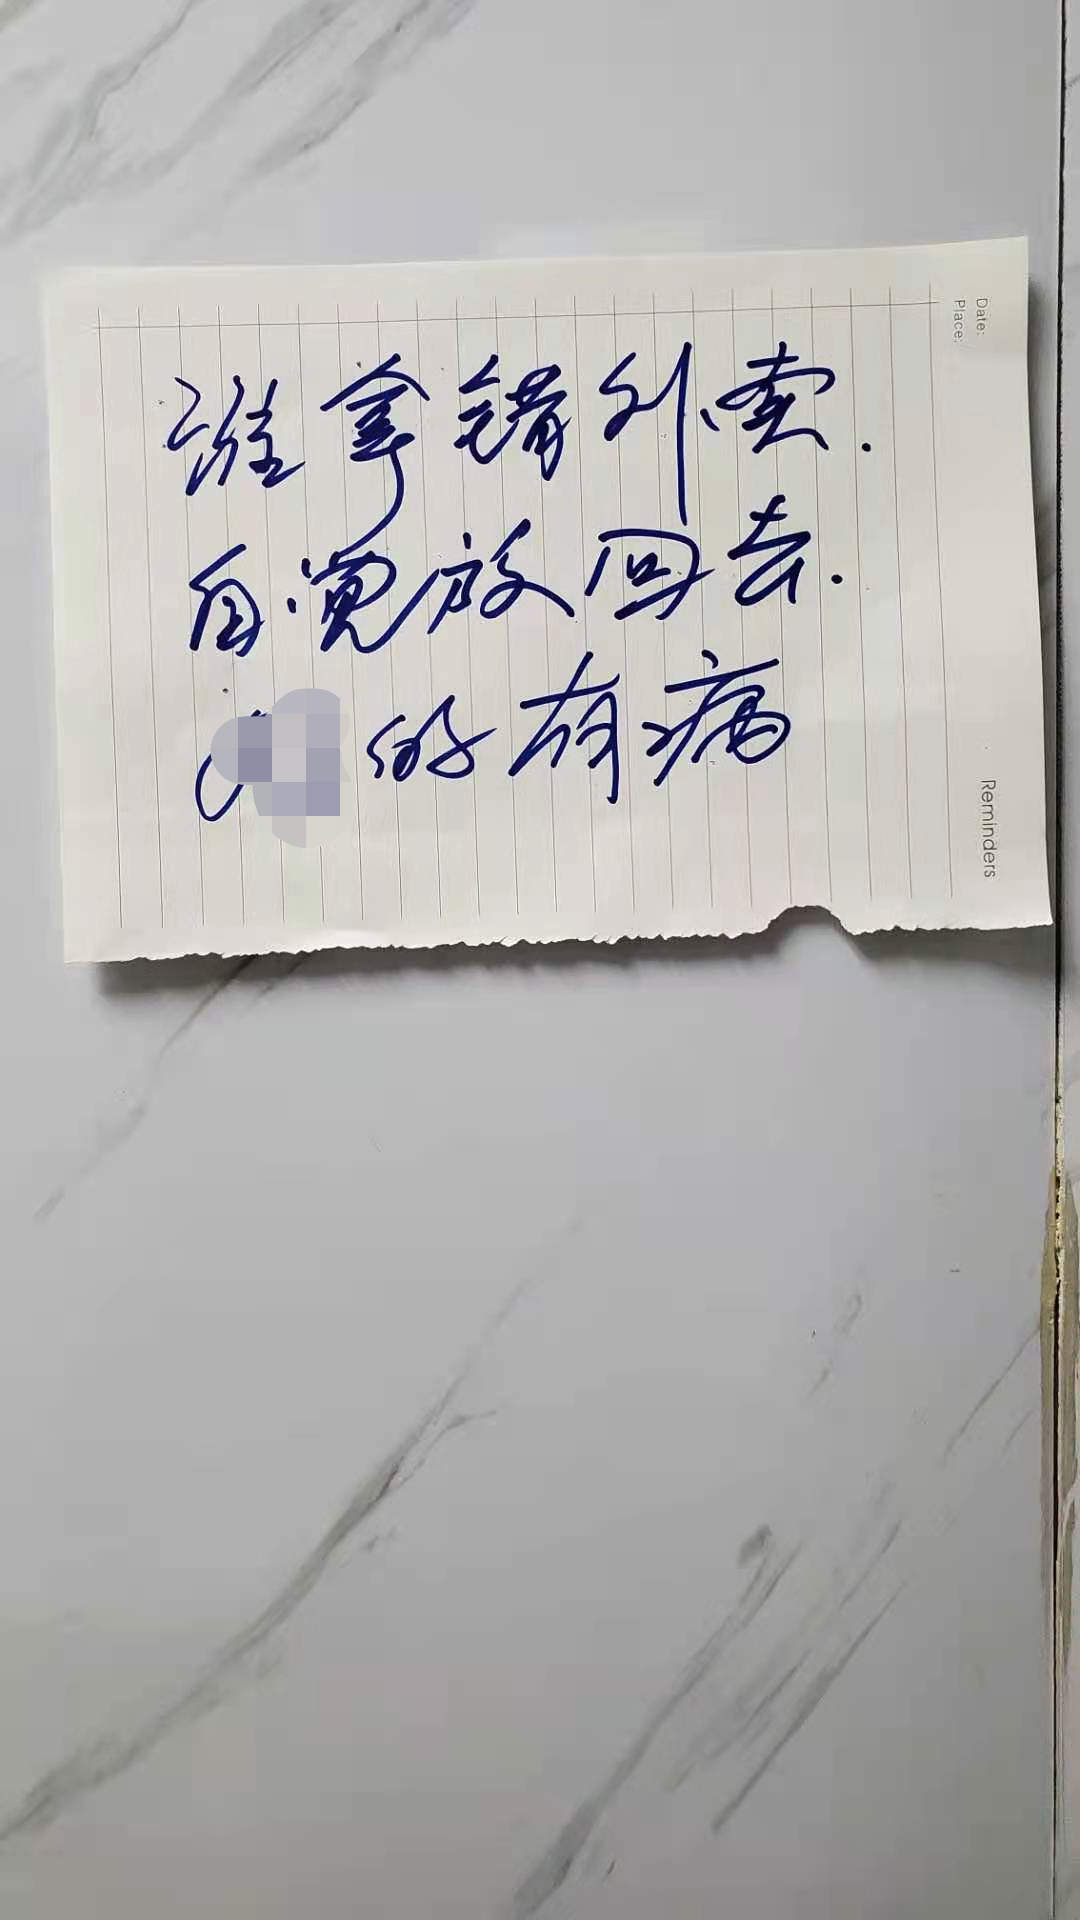 谁拿错外卖.
自觉放回去.
的有病
Date:
Place:
Reminders